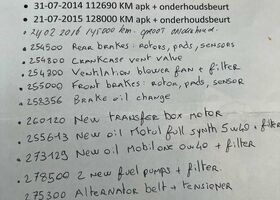 • 31-07-2014 112690 KM apk + onderhoudsbeurt
• 21-07-2015 128000 KM apk + onderhoudsbeurt
• 24.02 2016 145000 km. groot onderhoud.
• 254500 Rear brakes: rotors, pads, sensors
• 254800 Crankcase vent valve
• 254800 Ventilation blower fan + filter
• 255000 Front brakes: rotor, pads, sensor
• 258356 Brake oil change
• 260120 New transfer box motor
• 255613 New oil Motul full synth 5w40 + filter
• 273129 New oil Mobil one 0w40 + filter
• 278500 2 new fuel pumps + filter.
• 275300 Alternator belt + tensioner